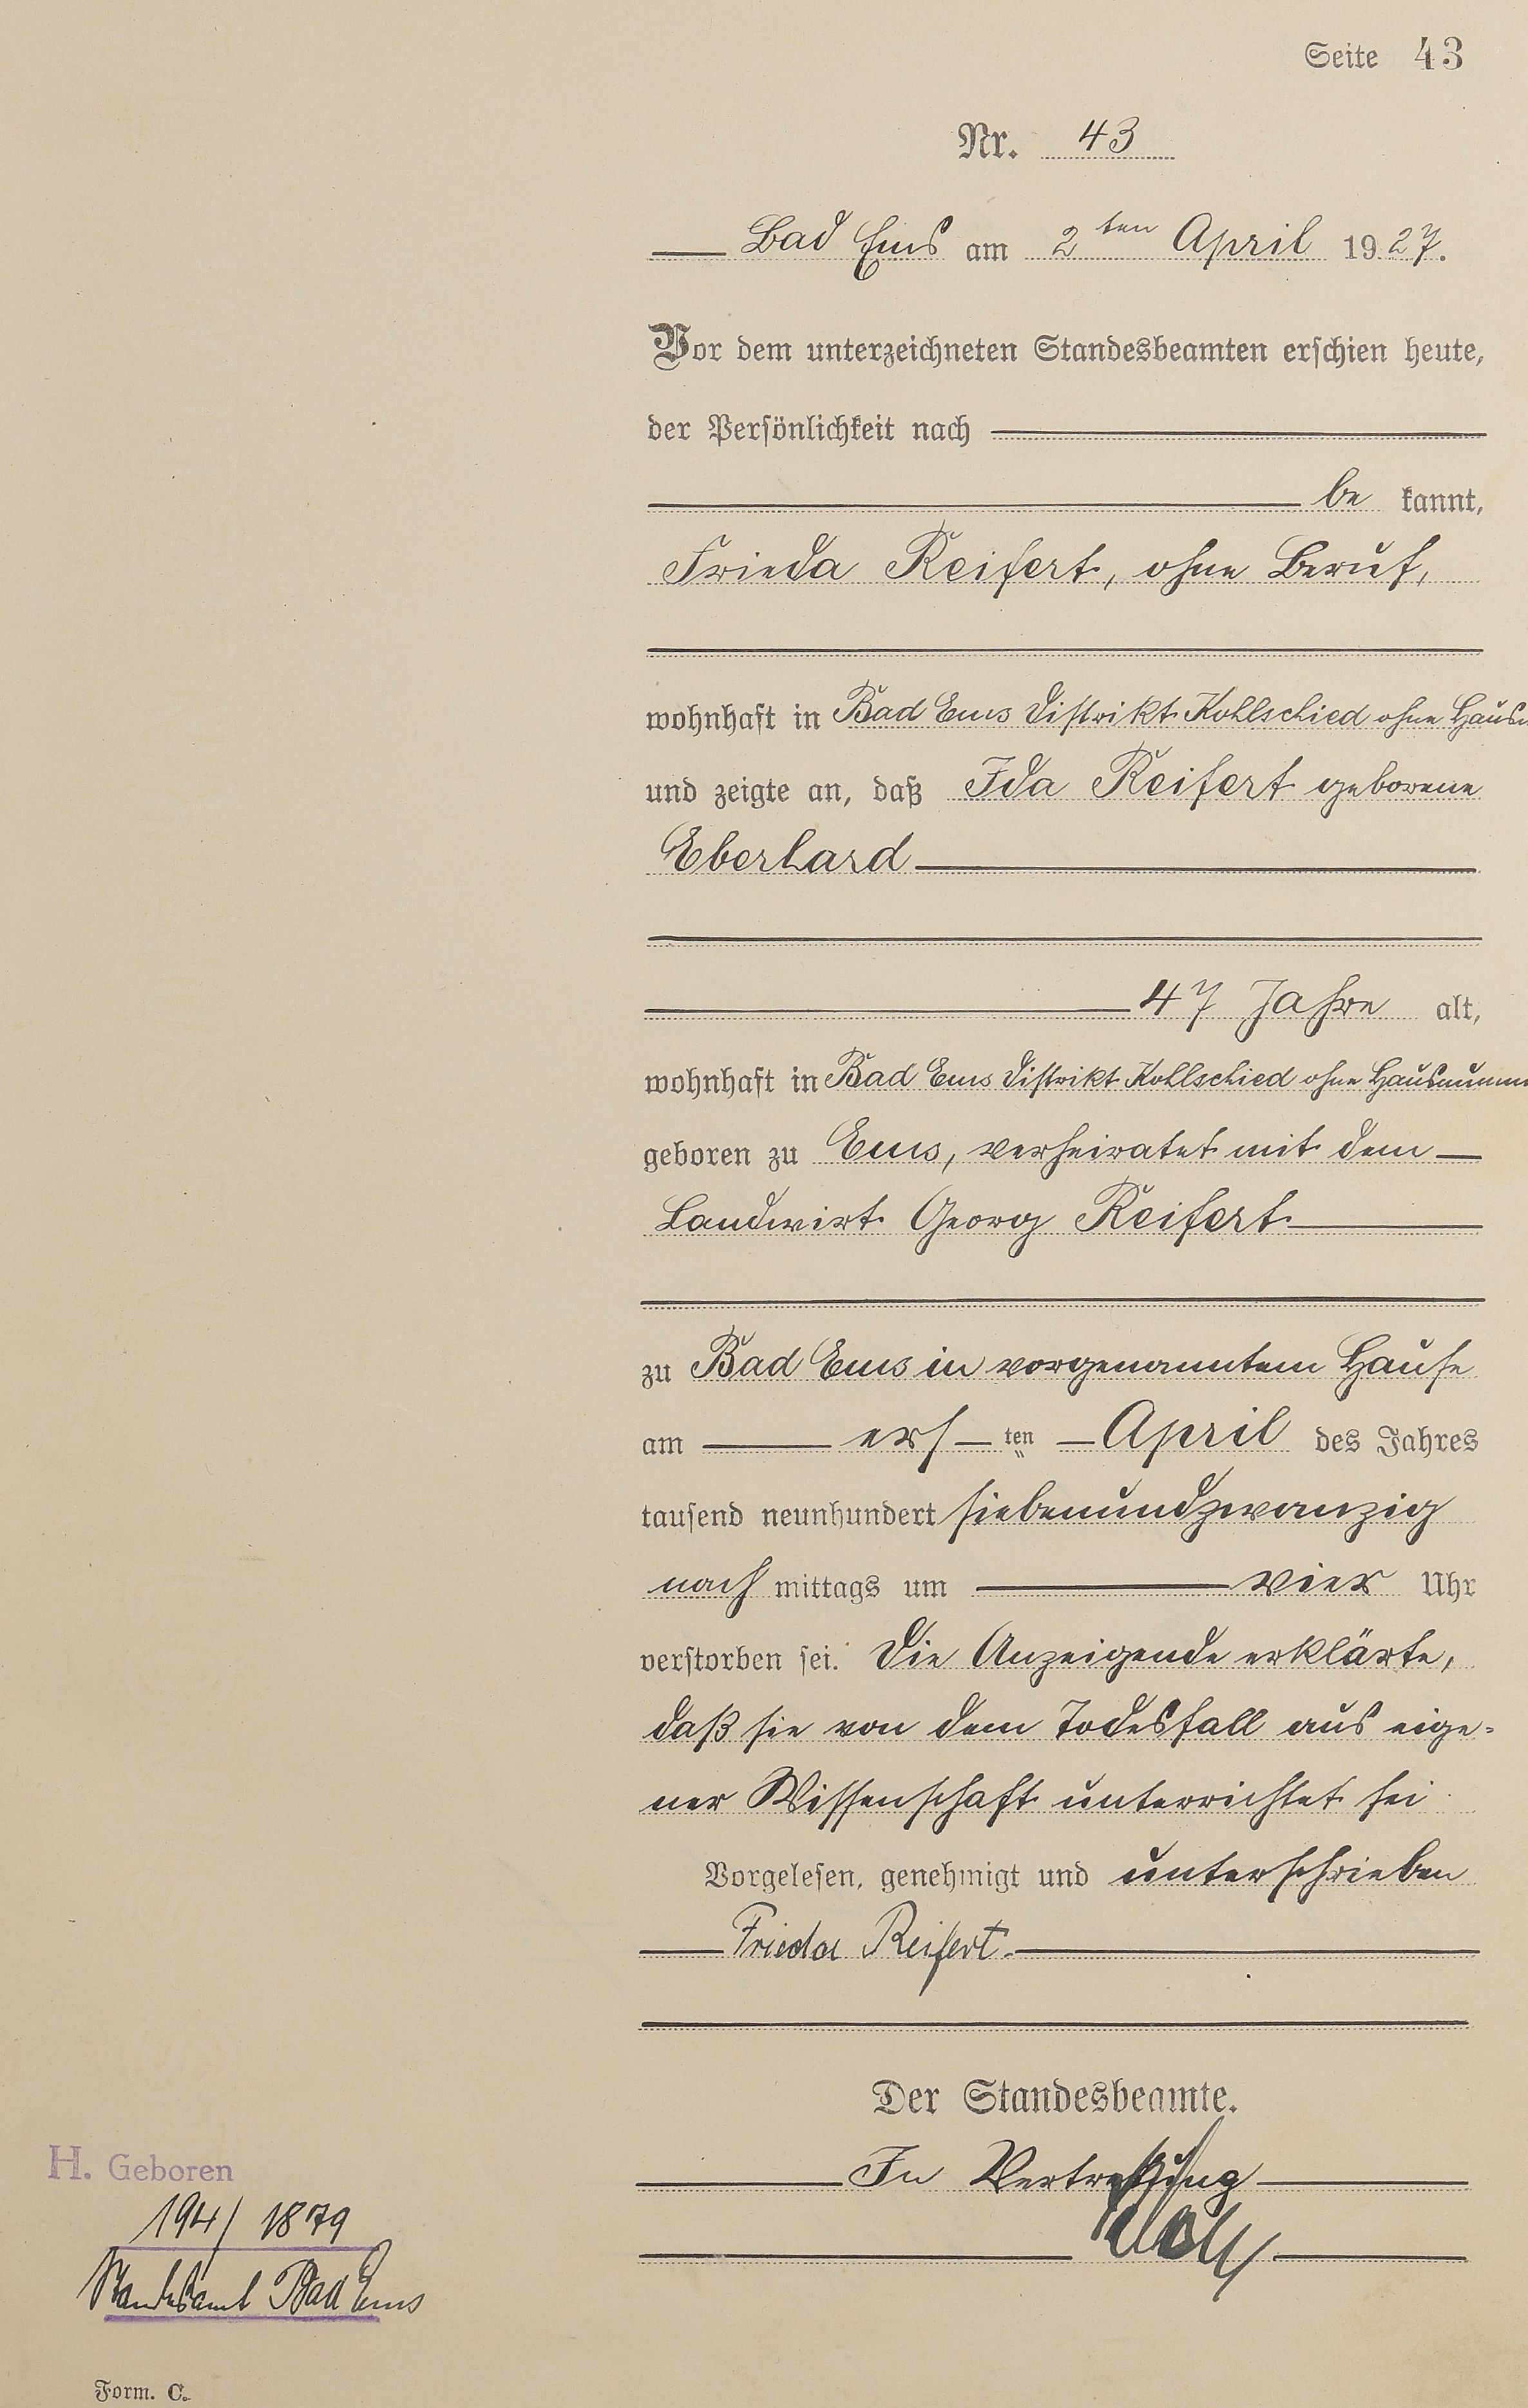 Seite 43
Nr. 43
Bad Ems am 2ten April 1927.
Vor dem unterzeichneten Standesbeamten erschien heute,
der Persönlichkeit nach
be kannt,
Frieda Reifert, ohne Beruf,
wohnhaft in Bad Ems Distrikt Kohlschied ohne
und zeigte an, daß Ida Reifert geborene
Eberhard
47 Jahre alt,
wohnhaft in Bad Ems Distrikt Kohlschied ohne
geboren zu Ems, verheiratet mit dem
Landwirt Georg Reifert
zu Bad Ems in vorgenanntem Hause
am ers ten April des Jahres
tausend neunhundert siebenundzwanzig
nach mittags um vier Uhr
verstorben sei. Die Anzeigende erklärte,
daß sie von dem Todesfall aus eige=
ner Wissenschaft unterrichtet sei
Vorgelesen, genehmigt und unterschrieben
Frieda Reifert.
Der Standesbeamte.
In Vertretung
H. Geboren
194/1879
Standesamt Bad Ems
Form. C.